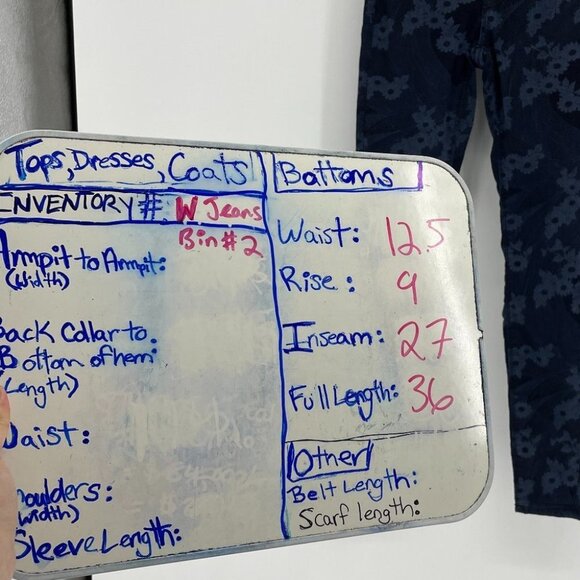 Tops, Dresses, Coats
INVENTORY # W Jeans
Bin # 2
Armpit to Armpit:
(Width)
Back Collar to
Bottom of hem:
(Length)
Waist:
Shoulders:
(width)
Sleeve Length:
Bottoms
Waist: 12.5
Rise: 9
Inseam: 27
Full Length: 36
Other
Belt Length:
Scarf length: